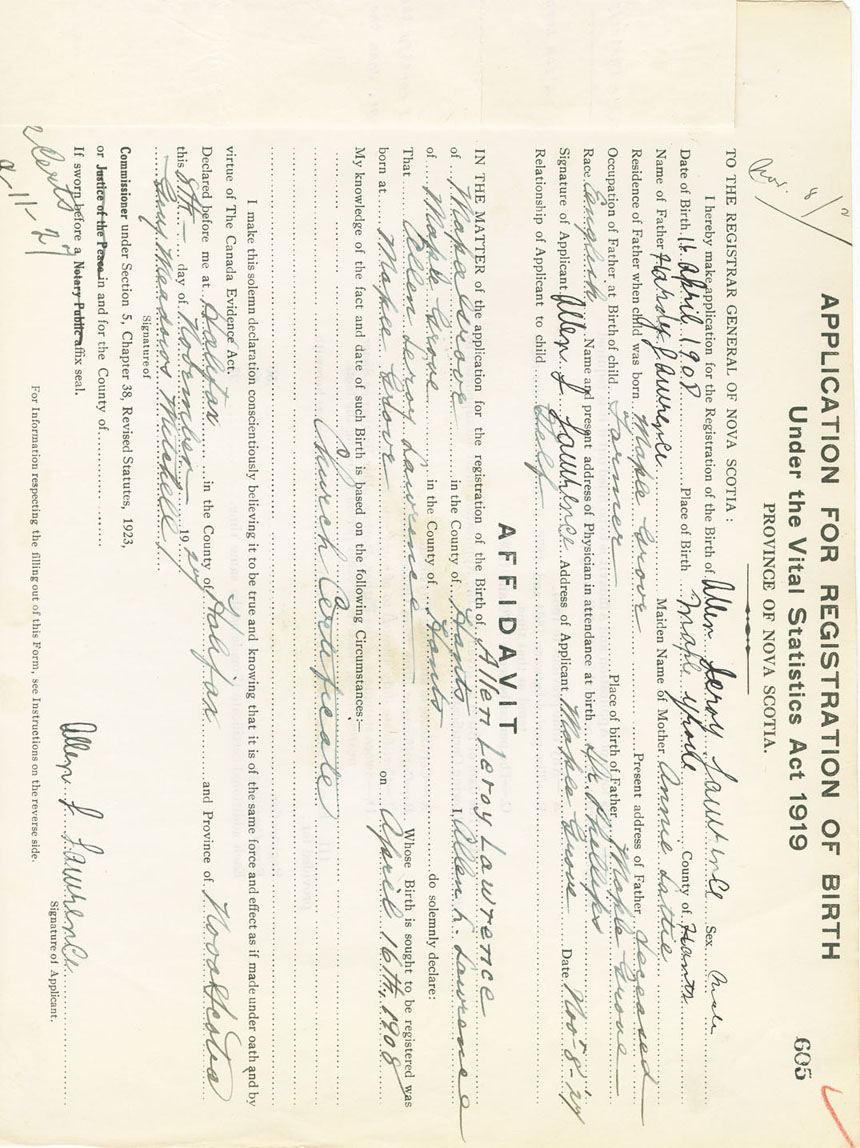 605
APPLICATION FOR REGISTRATION OF BIRTH
Under the Vital Statistics Act 1919
PROVINCE OF NOVA SCOTIA.
Nov. 8/2
TO THE REGISTRAR GENERAL OF NOVA SCOTIA :
I hereby make application for the Registration of the Birth of Allen Leroy Lawrence Sex Male
Date of Birth 16 April 1908 Place of Birth Maple Grove County of Hants
Name of Father Hardy J Lawrence Maiden Name of Mother Annie
Residence of Father when child was born Maple Grove Present address of Father deceased
Occupation of Father at Birth of child Farmer Place of birth of Father Maple Grove
Race English Name and present address of Physician in attendance at birth Dr. Phillips
Signature of Applicant Allen L Lawrence Address of Applicant Maple Grove Date Nov 8-'27
Relationship of Applicant to child Self
AFFIDAVIT
IN THE MATTER of the application for the registration of the Birth of Allen Leroy Lawrence
of Maple Grove in the County of Hants I, Allen L. Lawrence
of Maple Grove in the County of Hants do solemnly declare:
That Allen Leroy Lawrence Whose Birth is sought to be registered was
born at Maple Grove on April 16th, 1908
My knowledge of the fact and date of such Birth is based on the following Circumstances:—
Church Certificate
I make this solemn declaration conscientiously believing it to be true and knowing that it is of the same force and effect as if made under oath and by
virtue of The Canada Evidence Act.
Declared before me at Halifax in the County of Halifax and Province of Nova Scotia
this 8th day of November 1927
Mitchell
Signature of
Commissioner under Section 5, Chapter 38, Revised Statutes, 1923,
or Justice of the Peace in and for the County of
If sworn before a Notary Public affix seal.
Allen L Lawrence
Signature of Applicant.
For Information respecting the filling out of this Form, see Instructions on the reverse side.
2 Certs
11-27